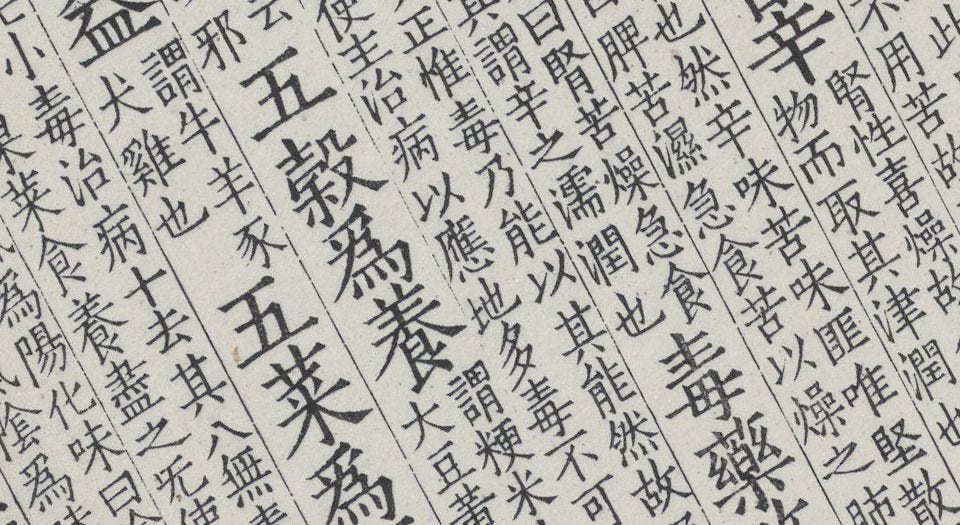 不用苦故
腎性喜燥故
辛
物而取其津潤也
也然辛味苦味匪唯堅散
脾苦濕急食苦以燥之肺
曰腎苦燥急食
其謂辛之濡潤也
毒藥
正惟毒乃能以其能然故
使主治病以應地多毒不可
云
邪
五穀爲養
謂粳米
大豆黃
益
謂牛羊豕
犬雞也
五菜爲
小毒治病十去其八無毒
果菜食養盡之无使
爲陽化味曰
陰爲